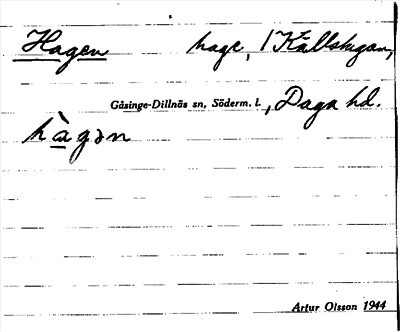 Hagen hage, / Källstugan,
Gåsinge-Dillnäs sn, Söderm. l., Daga hd.
hàgən
Artur Olsson 1944